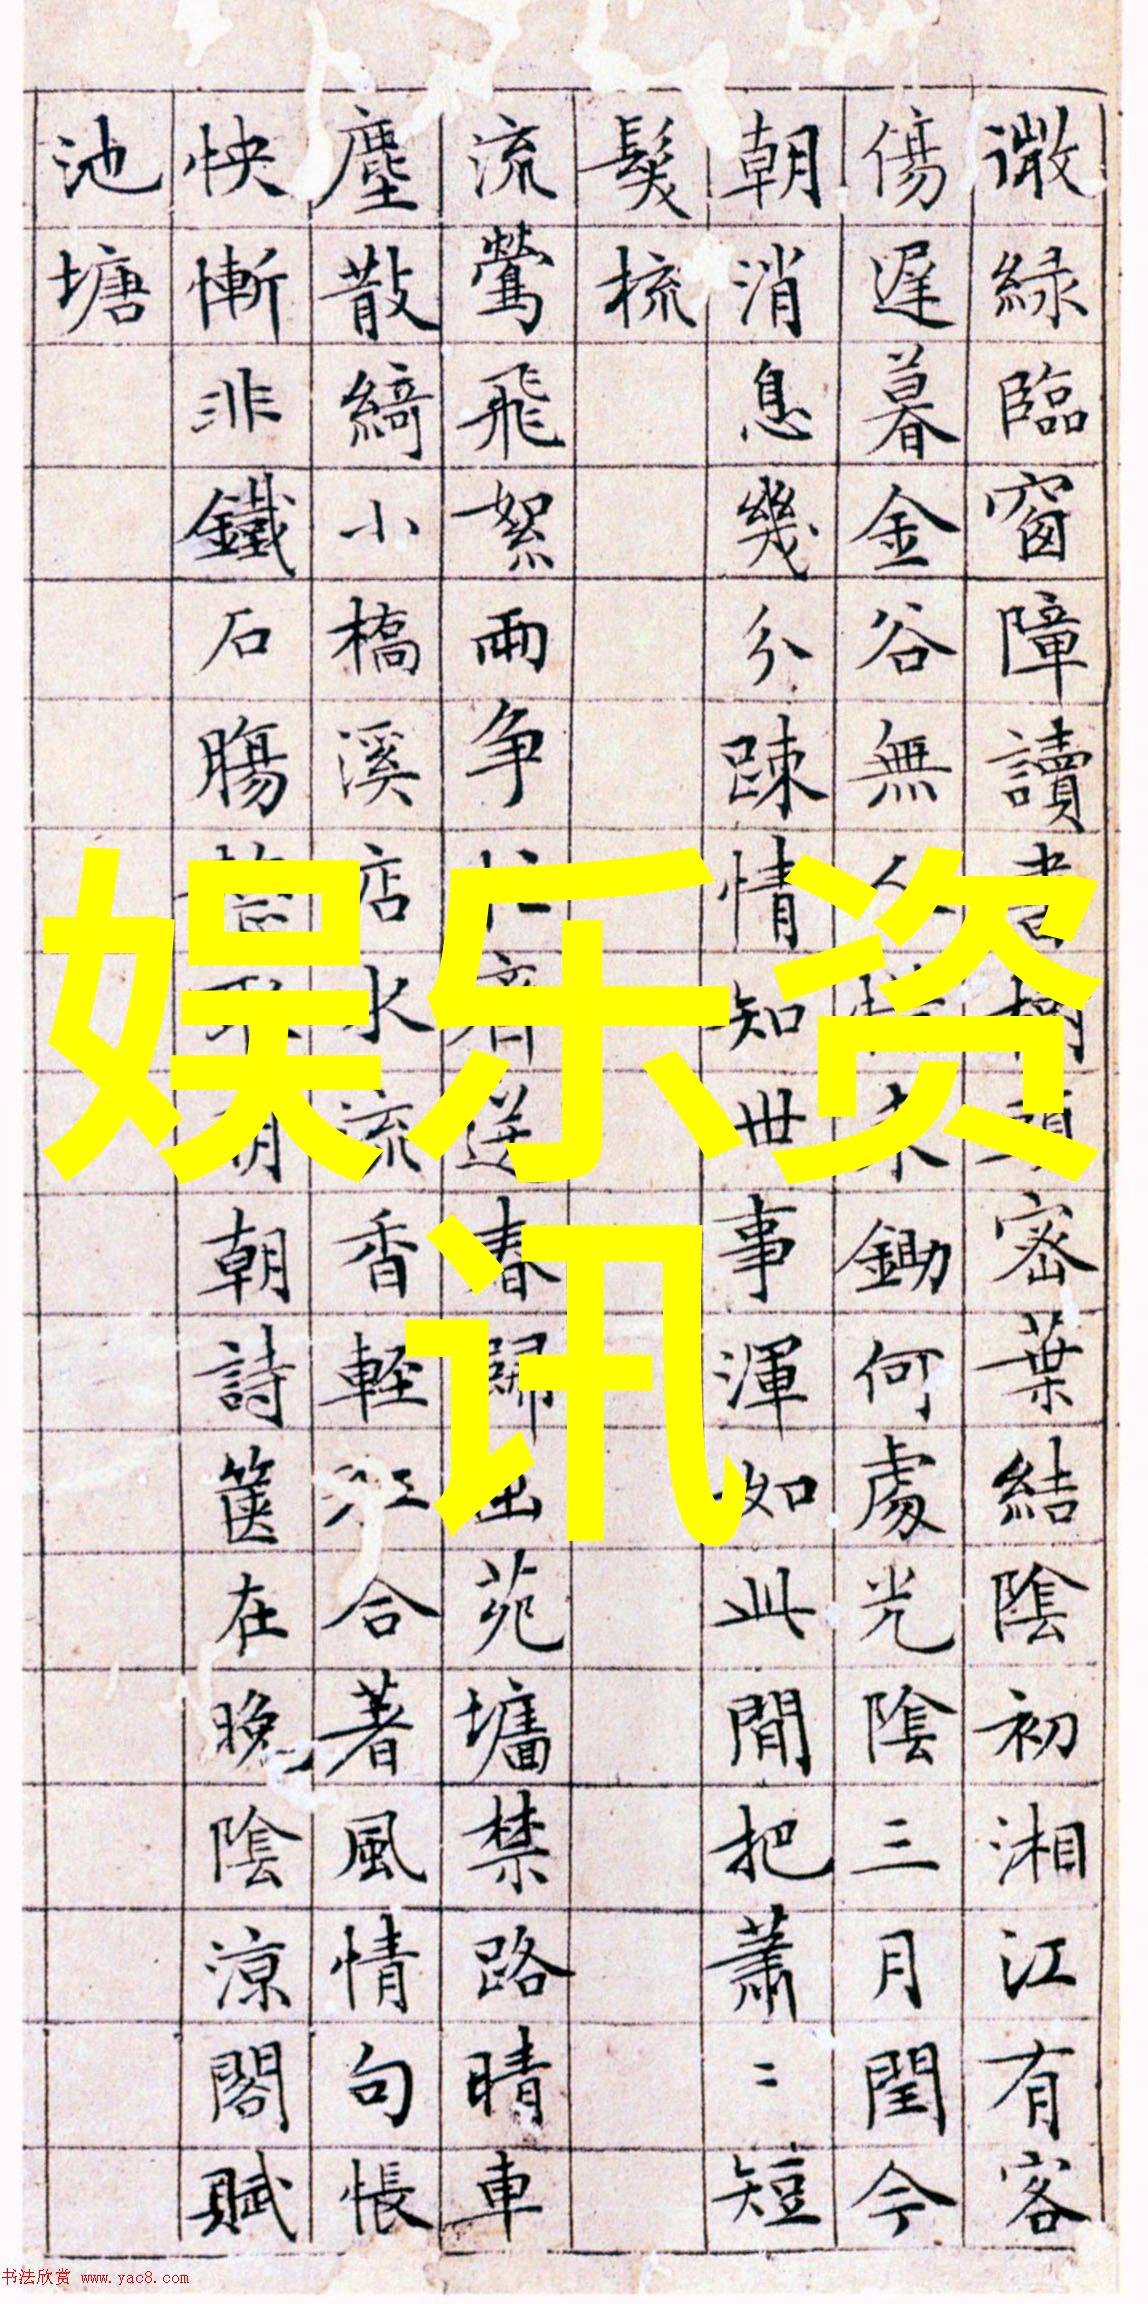 微綠臨窗障讀書頭密葉結陰初湘江有客
傷遲暮金谷無人鋤何處光陰三月閏今
朝消息幾分踈情知世事渾如此間把蕭〻短
髮梳
流鶯飛絮兩争忙送春歸出苑墻禁路晴車
塵散綺小橋溪店水流香輕江合著風情句悵
怏慚非鐵石腸朝詩篋在晚陰涼閣賦
池塘
娱乐资
讯
书法欣赏 www.yac8.com